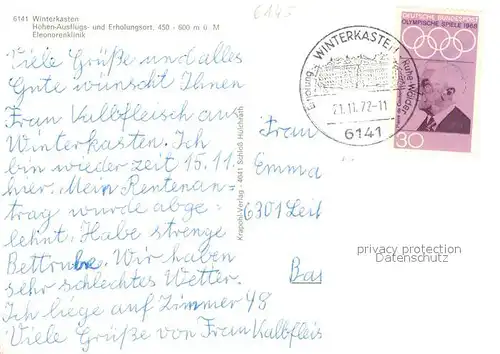 6141 Winterkasten
Höhen-Ausflugs- und Erholungsort, 450 - 600 m ü. M
Eleonorenklinik
6145
Viele Grüße und alles
Gute wünscht Ihnen
Frau Kalbfleisch aus
Winterkasten. Ich
bin wieder zeit 15.11.
hier. Mein Rentenan-
trag wurde abge-
lehnt. Habe strenge
Bettruhe. Wir haben
sehr schlechtes Wetter.
Ich liege auf Zimmer 48
Viele Grüße von Frau Kalbfleis
Krapohl-Verlag - 4041 Schloß Hülchrath
WINTERKASTEN
Erholung
Ruhe Wälder
21.11.72-11
6141
DEUTSCHE BUNDESPOST
OLYMPISCHE SPIELE 1968
30
Frau
Emma
6301 Leit
Bas
privacy protection
Datenschutz